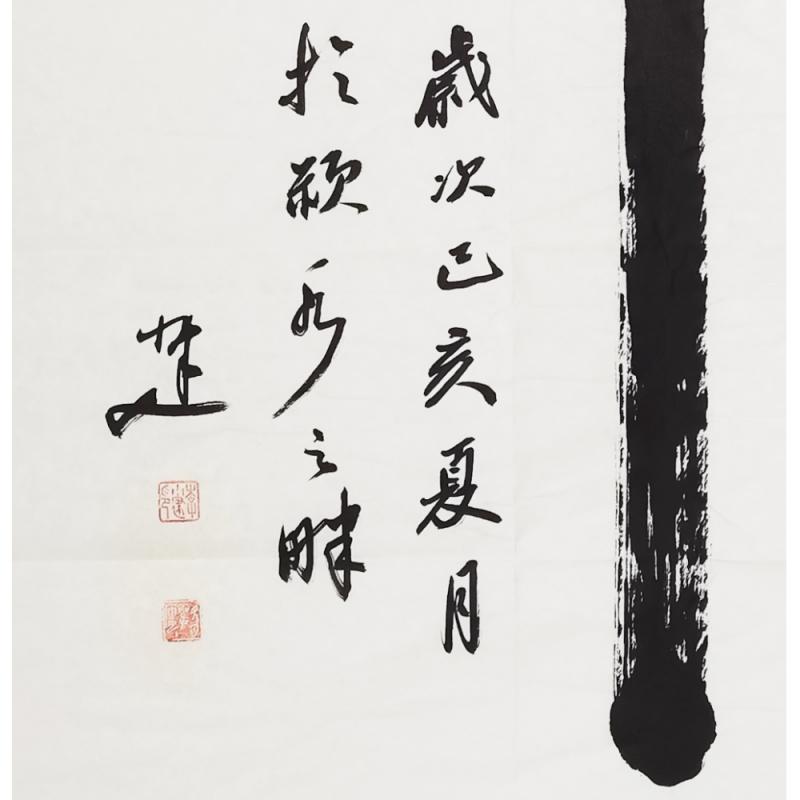 歲次己亥夏月
於潁水之畔